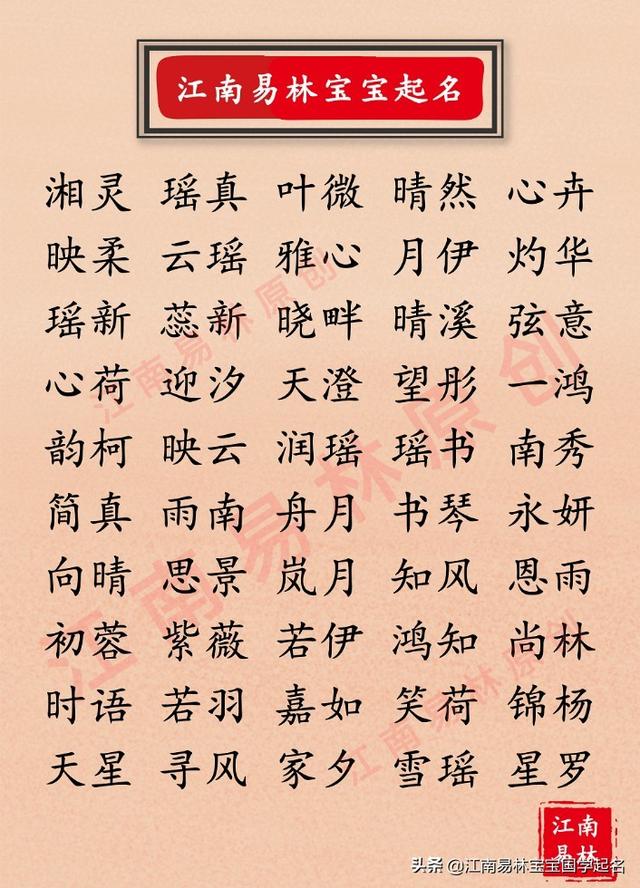 江南易林宝宝起名
湘灵 瑶真 叶微 晴然 心卉
映柔 云瑶 雅心 月伊 灼华
瑶新 蕊新 晓畔 晴溪 弦意
心荷 迎汐 天澄 望彤 一鸿
韵柯 映云 润瑶 瑶书 南秀
简真 雨南 舟月 书琴 永妍
向晴 思景 岚月 知风 恩雨
初蓉 紫薇 若伊 鸿知 尚林
时语 若羽 嘉如 笑荷 锦杨
天星 寻风 家夕 雪瑶 星罗
江南易林原创
江南易林原创
江南易林原创
江南
易林
头条 @江南易林宝宝国学起名